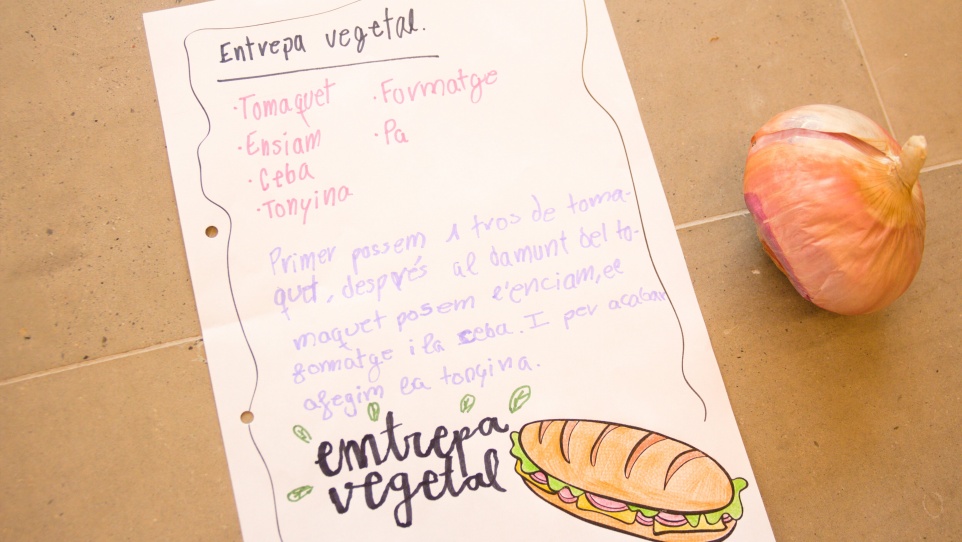 Entrepa vegetal.
· Tomaquet
· Ensiam
· Ceba
· Tonyina
· Formatge
· Pa
Primer possem 1 tros de toma-
quet, després al damunt del to-
maquet posem l'enciam, el
formatge i la ceba. I per acabar
afegim la tonyina.
entrepa
vegetal